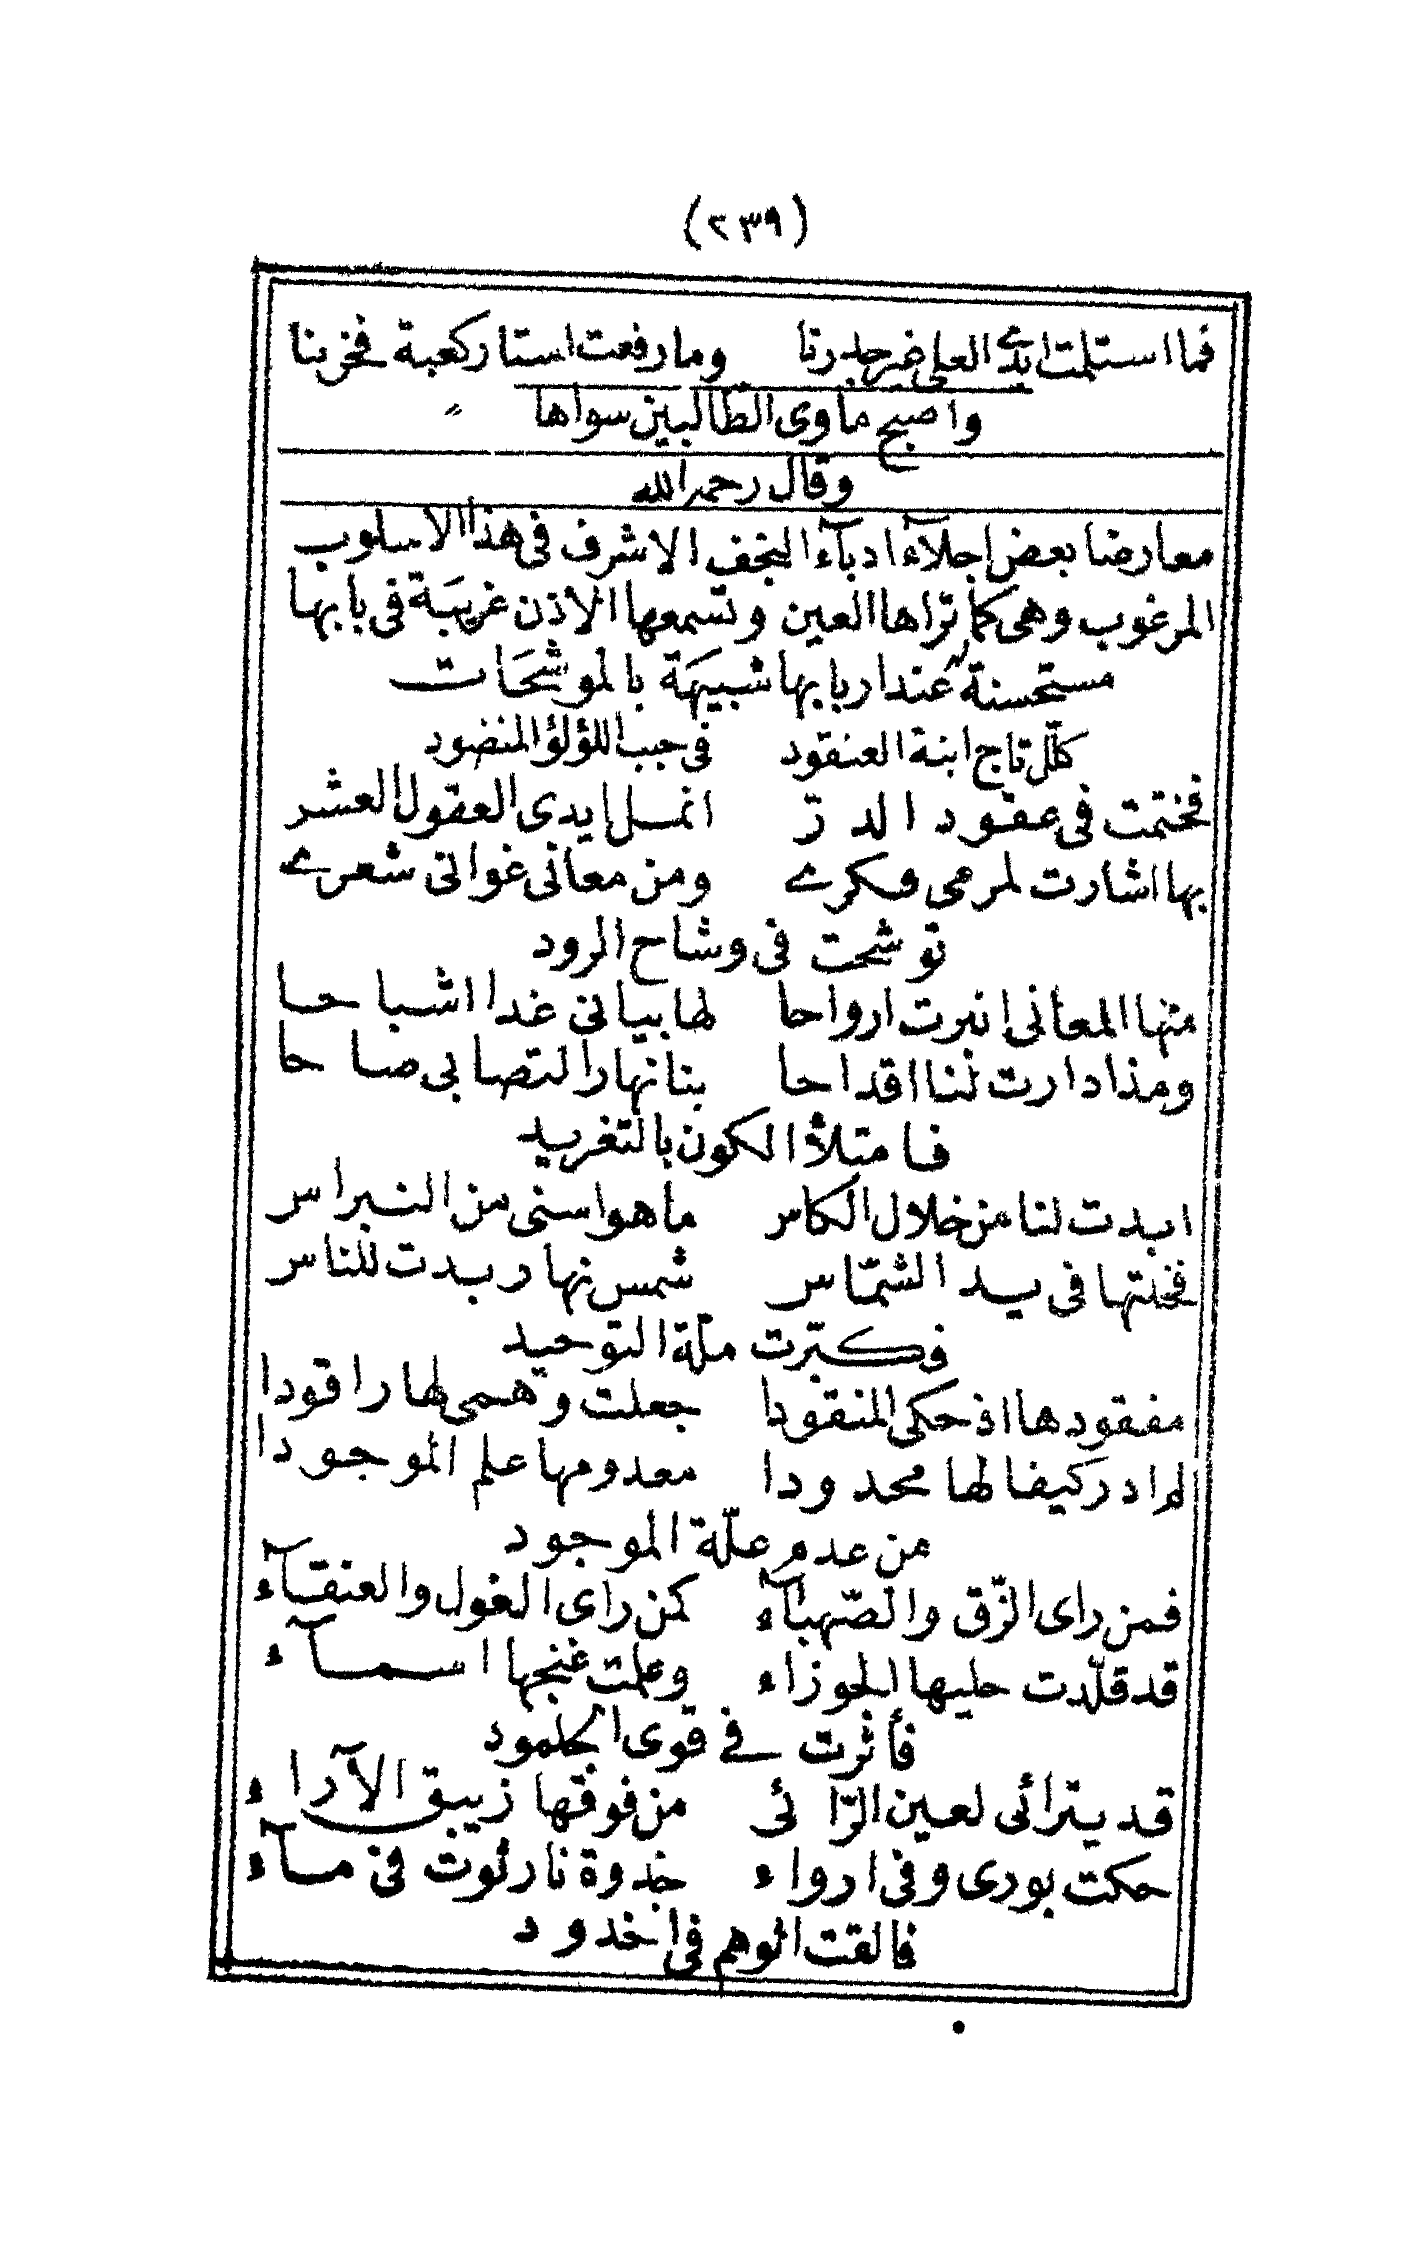 (٢٣٩)
فما استلمت ايدى العلى غير جدرنا ومارفعت استار كعبة فخرنا
واصبح ماوى الطالبين سواها
وقال رحمه الله
معارضا بعض اجلآء ادبآء النجف الاشرف فى هذا الاسلوب
المرغوب وهى كما تراها العين وتسمعها الاذن غريبة فى بابها
مستحسنة عند اربابها شبيهة بالموشحات
كلّل تاج ابنة العنقود فى حبب اللؤلؤ المنضود
فختمت فى عقود الدرّ انمل ايدى العقول العشر
بها اشارت لمرمى فكرے ومن معانى غوانى شعرے
توشحت فى وشاح الرود
منها المعانى انبرت ارواحا لها بيانى غدا اشباحا
ومذ ادارت لنا اقداحا بنا نهار التصابى صاحا
فامتلأ الكون بالتغريد
ابدت لنا من خلال الكاس ما هو اسنى من النبراس
فخلتها فى يد الشمّاس شمس نهار بدت للناس
فكبّرت ملّة التوحيد
مفقودها اذ حكى المنقودا جعلت وهمى لها راقودا
لم ادر كيفا لها محدودا معدومها علم الموجودا
من عدم علّة الموجود
فمن راى الزّق والصّهبآء كمن راى الغول والعنقآء
قد قلّدت حليها الجوزاء وعلمت غنجها اسمآء
فأثرت فى قوى الجلمود
قد يترائى لعين الرّائى من فوقها زيبق الآراء
حكت بورى وفى ارواء جذوة نار ئوت فى مآء
فالقت الوهم فى اخدود